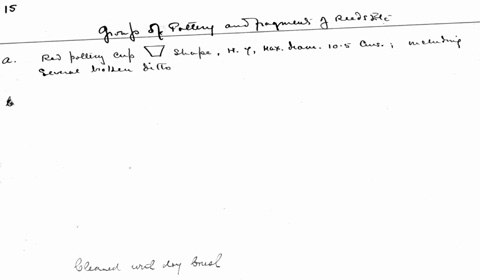 15
Group of Pottery and fragment of Reeds etc
a. Red pottery cup shape, H. 7, Max. diam. 10.5 cms.; including
several broken ditto
b
Cleaned with dry brush